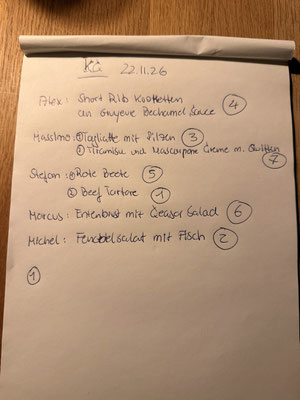 Kü 22.11.26
Alex: Short Rib Kroketten
an Gruyere Bechamel Sauce ④
Massimo: ① Tagliatte mit Pilzen ③
② Tiramisu und Mascarpone Creme m. Quitten ⑦
Stefan: ① Rote Beete ⑤
② Beef Tartare ①
Marcus: Entenbrust mit Ceasar Salad ⑥
Michel: Fenchelsalat mit Fisch ②
①